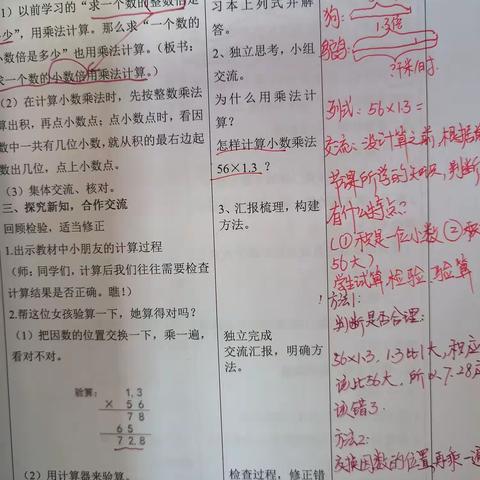 1）以前学习的“求一个数的整数倍是
多少”，用乘法计算。那么求“一个数的
小数倍是多少”也用乘法计算。（板书：
求一个数的小数倍用乘法计算。）
（2）在计算小数乘法时，先按整数乘法
算出积，再点小数点；点小数点时，看因
数中一共有几位小数，就从积的最右边起
数出几位，点上小数点。
（3）集体交流、核对。
三、探究新知，合作交流
回顾检验，适当修正
1.出示教材中小朋友的计算过程
（师：同学们，计算后我们往往需要检查
计算结果是否正确。瞧！）
2.帮这位女孩验算一下，她算得对吗？
（1）把因数的位置交换一下，乘一遍，
看对不对。
验算： 1.3
× 5 6
7 8
6 5
7 2.8
（2）用计算器来验算。
习本上列式并解
答。
2、独立思考，小组
交流。
为什么用乘法计
算？
怎样计算小数乘法
56×1.3？
3、汇报梳理，构建
方法。
独立完成
交流汇报，明确方
法。
检查过程，修正错
狗：
1.3倍
鸵鸟：
?千米/时
列式：56×1.3=
交流：没计算之前，根据
节课所学的知识，判断
有什么特点？
（①积是一位小数 ②
56大）
学生试算，检验，验算
方法1：
判断是否合理：
56×1.3，1.3比1大，积应
该比56大，所以7.28应
该错了.
方法2：
交换因数的位置，再乘一遍